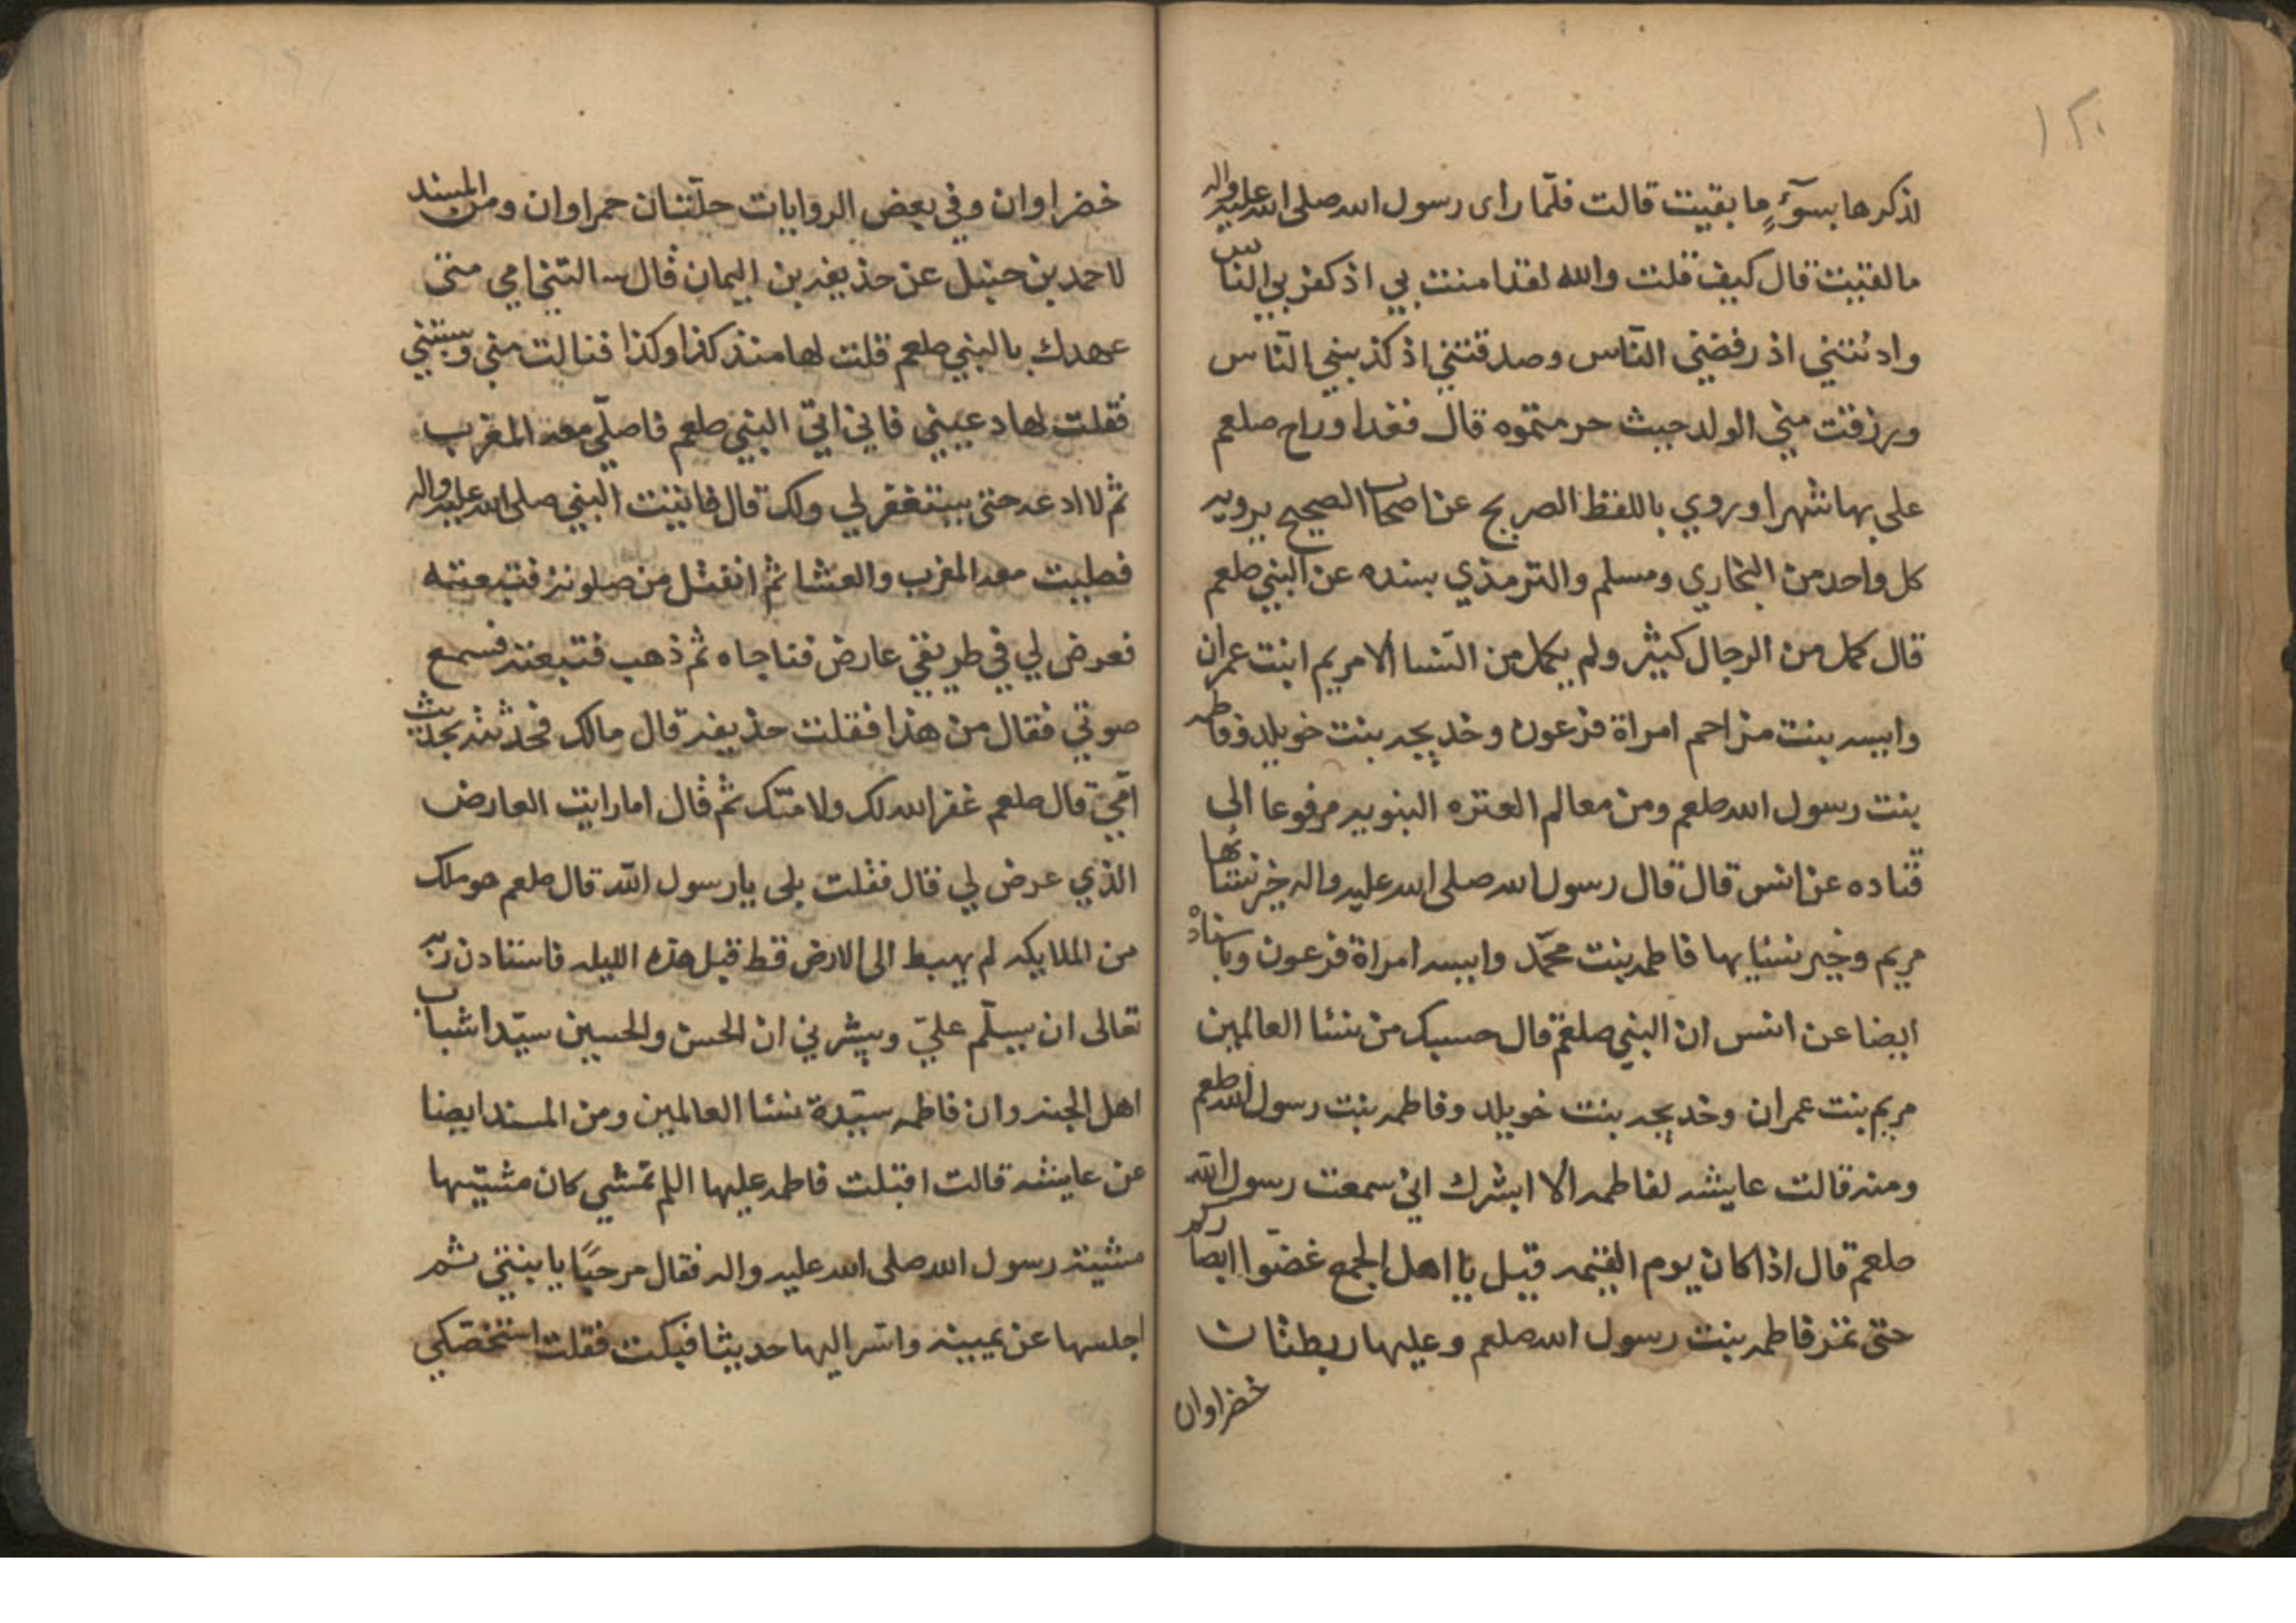 ١٢٠
اذكرها بسوٓءٍ ما بقيت قالت فلمّا راى رسول الله صلى الله عليه واله
ما لقيت قال كيف قلت والله لقد امنت بي اذ كفر بي الناس
وادنتني اذ رفضني النّاس وصدقتني اذ كذبني النّاس
ورزقت مني الولد حيث حرمتموه قال فغدا وراح صلعم
علي بها شهرا وروي باللفظ الصريح عن اصحاب الصحيح يرويه
كل واحد من البخاري ومسلم والترمذي بسنده عن النبي صلعم
قال كمل من الرجال كثير ولم يكمل من النّسا الا مريم ابنت عمران
واسيه بنت مزاحم امراة فرعون وخديجه بنت خويلد وفاطمه
بنت رسول الله صلعم ومن معالم العتره النبويه مرفوعا الى
قتاده عن انس قال قال رسول الله صلى الله عليه واله خير نسائها
مريم وخير نسايها فاطمه بنت محمّد واسيه امراة فرعون وباسناده
ايضا عن انس ان النبي صلعم قال حسبك من نسا العالمين
مريم بنت عمران وخديجه بنت خويلد وفاطمه بنت رسول الله صلعم
ومنه قالت عايشه لفاطمه الا ابشرك اني سمعت رسول الله
صلعم قال اذا كان يوم القيمه قيل يا اهل الجمع غضّوا ابصاركم
حتى تمر فاطمه بنت رسول الله صلعم وعليها ريطتان
خضراوان
خضراوان وفي بعض الروايات حلّتان حمراوان ومن المسند
لاحمد بن حنبل عن حذيفه بن اليمان قال سالتني امي متى
عهدك بالنبي صلعم قلت لها منذ كذا وكذا فنالت مني وسبتني
فقلت لها دعيني فاني اتي النبي صلعم فاصلّي معه المغرب
ثم لا ادعه حتى يستغفر لي ولك قال فاتيت النبي صلى الله عليه واله
فصليت معه المغرب والعشا ثم انفتل من صلوته فتبعته
فعرض لي في طريقي عارض فناجاه ثم ذهب فتبعته فسمع
صوتي فقال من هذا فقلت حذيفه قال مالك فحدثته بحديث
امّي قال صلعم غفر الله لك ولامّك ثم قال اما رايت العارض
الذي عرض لي قال فقلت بلى يا رسول الله قال صلعم هو ملك
من الملايكه لم يهبط الى الارض قط قبل هذه الليله فاستاذن ربه
تعالى ان يسلّم عليّ ويبشرني ان الحسن والحسين سيّدا شباب
اهل الجنه وان فاطمه سيّدة نسا العالمين ومن المسند ايضا
عن عايشه قالت اقبلت فاطمه عليها السلم تمشي كان مشيتها
مشية رسول الله صلى الله عليه واله فقال مرحبًا يا بنتي ثم
اجلسها عن يمينه واسّر اليها حديثا فبكت فقلت استخصّكي